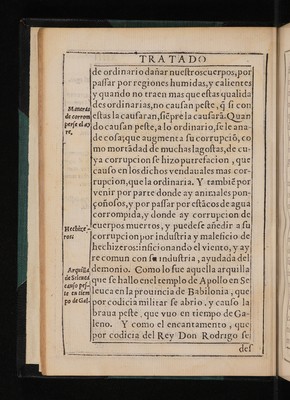 TRATADO
de ordinario dañar nuestros cuerpos, por
passar por regiones humidas, y calientes
y quando no traen mas que estas qualida
des ordinarias, no causan peste, q̃ si con
estas la causaran, siẽpre la causarã. Quan
do causan peste, a lo ordinario, se le ana-
de cosa; que augmenta su corrupciõ, co
mo mortãdad de muchas lagostas, de cu-
ya corrupcion se hizo putrefacion, que
causo en los dichos vendauales mas cor-
rupcion, que la ordinaria. Y tambiẽ por
venir por parte donde ay animales pon-
çoñosos, y por passar por estãcos de agua
corrompida, y donde ay corrupcion de
cuerpos muertos, y puedese añedir a su
corrupcion por industria y maleficio de
hechizeros: inficionando el viento, y ay
re comun con su industria, ayudada del
demonio. Como lo fue aquella arquilla
que se hallo en el templo de Apollo en Se
leuca en la prouincia de Babilonia, que
por codicia militar se abrio, y causo la
braua peste, que vuo en tiempo de Ga-
leno. Y como el encantamento, que
por codicia del Rey Don Rodrigo se
des
Maneras
de corrom
perse el ay
re.
Hechize-
ros
Arquilla
de Seleucia
causo pes-
te en tiem
po de Gal.